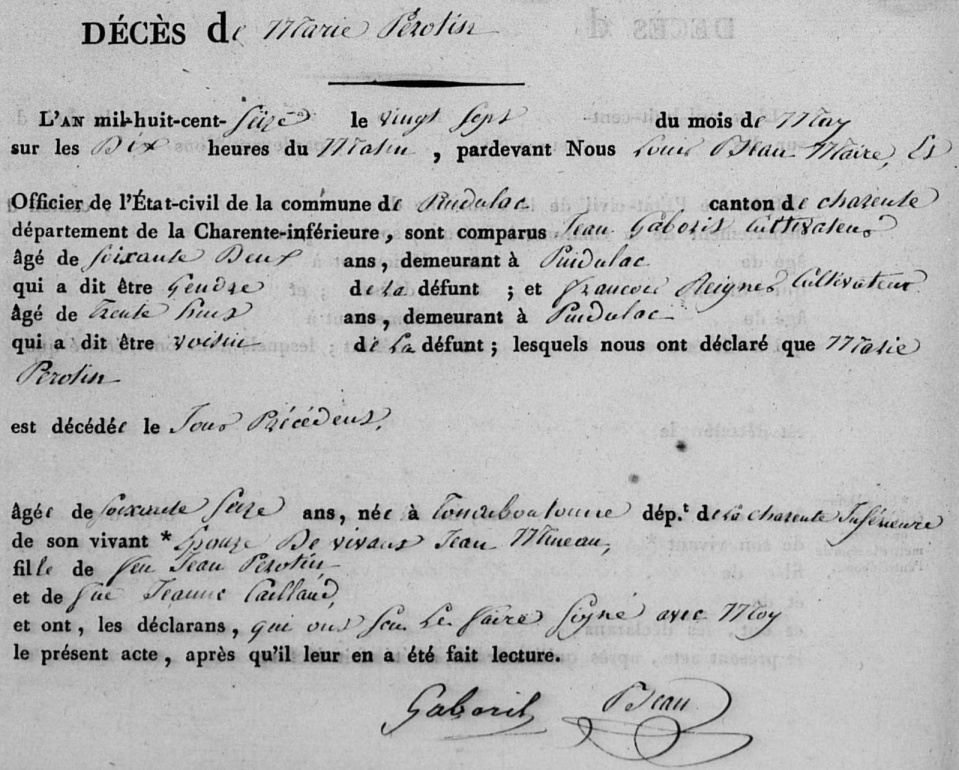 DÉCÈS de Marie Perotin
L'AN mil-huit-cent-Seize le vingt Sept du mois de May
sur les Dix heures du Matin, pardevant Nous Louis Beau Maire, Et
Officier de l'État-civil de la commune de Puidulac canton de charente
département de la Charente-inférieure, sont comparus Jean Gaborit Cultivateur
âgé de soixante Deux ans, demeurant à Puidulac
qui a dit être Gendre de La défunt ; et francois Reigner Cultivateur
âgé de Trente ans, demeurant à Puidulac
qui a dit être voisin de La défunt ; lesquels nous ont déclaré que Marie
Perotin
est décédée le Jour Précédent,
âgée de soixante Seize ans, née à Tonneboutonne dép.t de La charente Inférieure
de son vivant * Epouze De vivant Jean Mineau,
fille de feu Jean Perotin
et de feue Jeanne Caillaud,
et ont, les déclarans, qui ont Seu Le faire Signé avec Moy
le présent acte, après qu'il leur en a été fait lecture.
Gaborit Beau